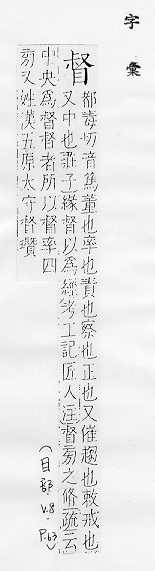 字彙
督
都毒切音篤董也率也責也察也正也又催趨也敕戒也
又中也莊子緣督以為經考工記匠人注督旁之脩疏云
中央為督督者所以督率四
旁又姓漢五原太守督瓚
(目部
V.8.
P.63)